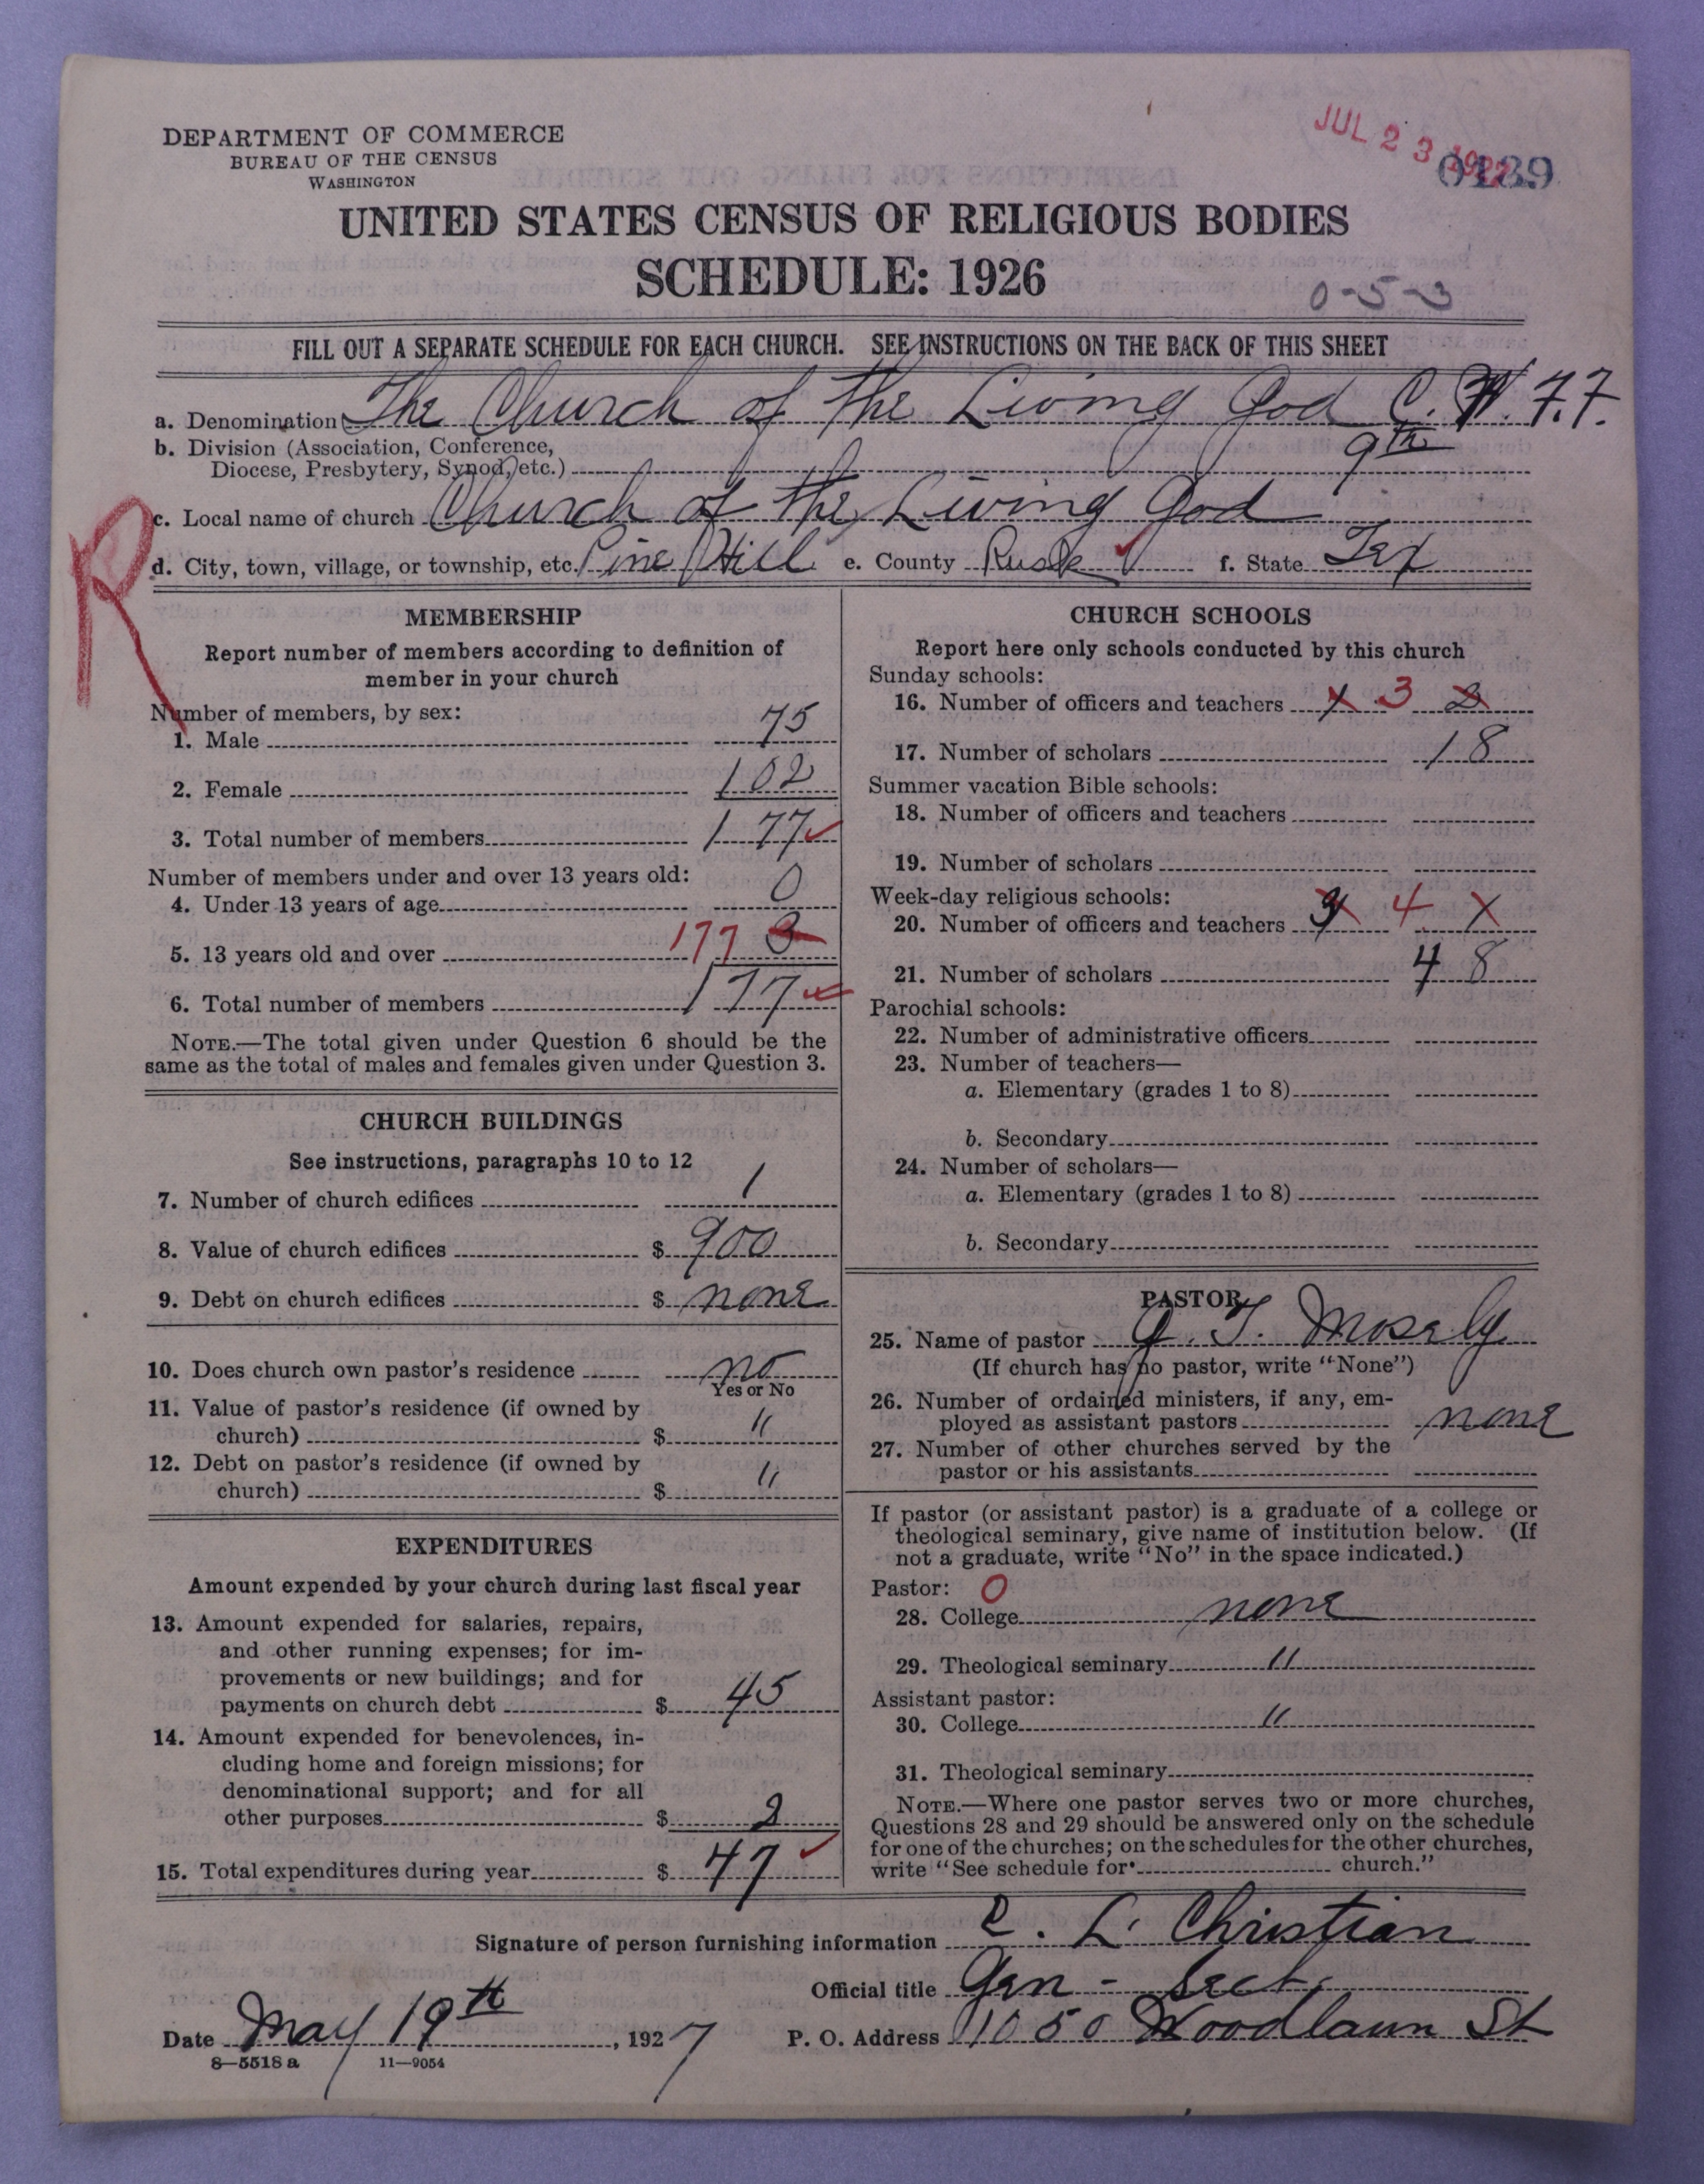 DEPARTMENT OF COMMERCE
BUREAU OF THE CENSUS
WASHINGTON
JUL 23
0189
UNITED STATES CENSUS OF RELIGIOUS BODIES
SCHEDULE: 1926
0-5-3
FILL OUT A SEPARATE SCHEDULE FOR EACH CHURCH. SEE INSTRUCTIONS ON THE BACK OF THIS SHEET
a. Denomination The Church of the Living God C. W. F. F.
b. Division (Association, Conference,
Diocese, Presbytery, Synod, etc.) 9th
R
c. Local name of church Church of the Living God
d. City, town, village, or township, etc. Pine Hill e. County Rusk f. State Tex
MEMBERSHIP
Report number of members according to definition of
member in your church
Number of members, by sex:
1. Male 75
2. Female 102
3. Total number of members 177
Number of members under and over 13 years old:
4. Under 13 years of age 0
5. 13 years old and over 177
6. Total number of members 177
NOTE.—The total given under Question 6 should be the
same as the total of males and females given under Question 3.
CHURCH BUILDINGS
See instructions, paragraphs 10 to 12
7. Number of church edifices 1
8. Value of church edifices $ 900
9. Debt on church edifices $ none
10. Does church own pastor's residence no
Yes or No
11. Value of pastor's residence (if owned by
church) $ "
12. Debt on pastor's residence (if owned by
church) $ "
EXPENDITURES
Amount expended by your church during last fiscal year
13. Amount expended for salaries, repairs,
and other running expenses; for im-
provements or new buildings; and for
payments on church debt $ 45
14. Amount expended for benevolences, in-
cluding home and foreign missions; for
denominational support; and for all
other purposes $ 2
15. Total expenditures during year $ 47
CHURCH SCHOOLS
Report here only schools conducted by this church
Sunday schools:
16. Number of officers and teachers x 3 2
17. Number of scholars 18
Summer vacation Bible schools:
18. Number of officers and teachers
19. Number of scholars
Week-day religious schools:
20. Number of officers and teachers 3 4 X
21. Number of scholars 48
Parochial schools:
22. Number of administrative officers
23. Number of teachers—
a. Elementary (grades 1 to 8)
b. Secondary
24. Number of scholars—
a. Elementary (grades 1 to 8)
b. Secondary
PASTOR
25. Name of pastor J. T. Mosely
(If church has no pastor, write "None")
26. Number of ordained ministers, if any, em-
ployed as assistant pastors none
27. Number of other churches served by the
pastor or his assistants
If pastor (or assistant pastor) is a graduate of a college or
theological seminary, give name of institution below. (If
not a graduate, write "No" in the space indicated.)
Pastor: O
28. College none
29. Theological seminary "
Assistant pastor:
30. College "
31. Theological seminary
NOTE.—Where one pastor serves two or more churches,
Questions 28 and 29 should be answered only on the schedule
for one of the churches; on the schedules for the other churches,
write "See schedule for church."
Signature of person furnishing information C. L. Christian
Official title Gen - Sect.
Date May 19th, 1927 P. O. Address 1050 Woodlawn St
8—5518 a 11—9054